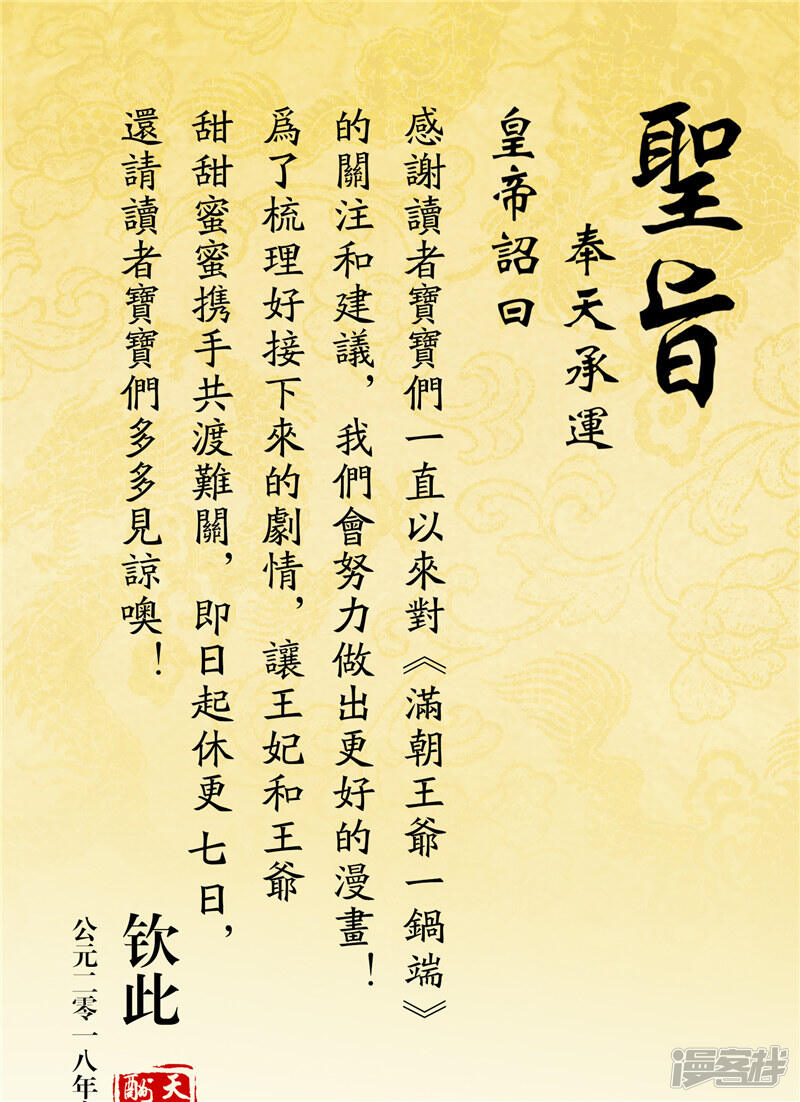 聖旨
奉天承運
皇帝詔曰
感謝讀者寶寶們一直以來對《滿朝王爺一鍋端》
的關注和建議，我們會努力做出更好的漫畫！
爲了梳理好接下來的劇情，讓王妃和王爺
甜甜蜜蜜携手共渡難關，即日起休更七日，
還請讀者寶寶們多多見諒噢！
钦此
公元二零一八年
天
漫客栈